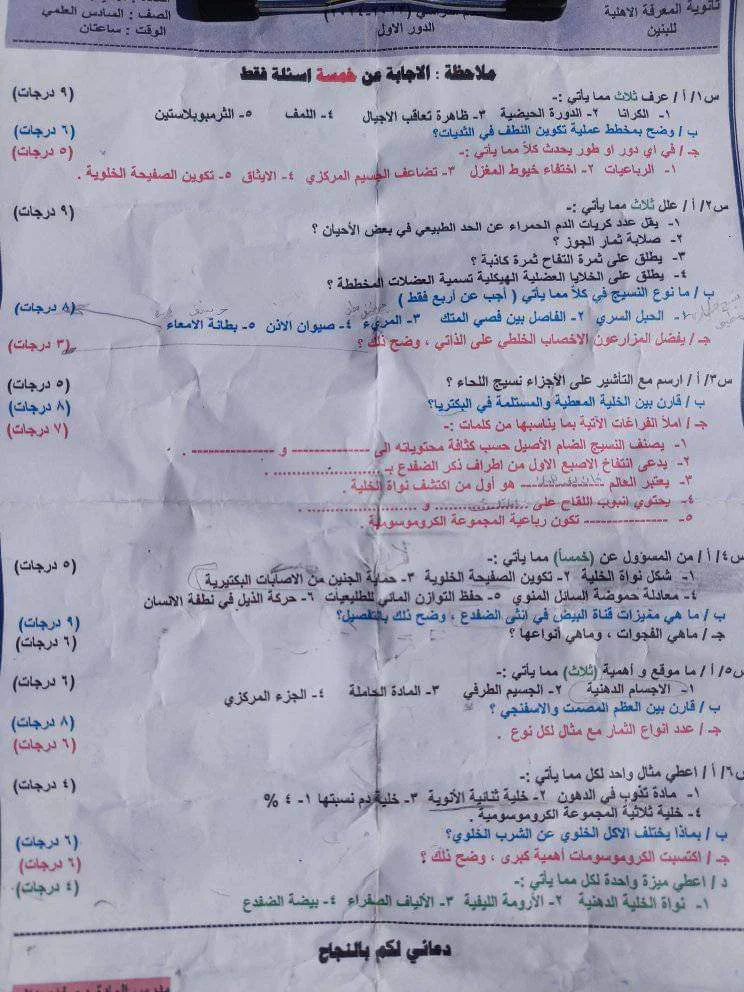 ثانوية المعرفة الاهلية
للبنين
الدور الاول
الصف : السادس العلمي
الوقت : ساعتان
ملاحظة : الاجابة عن خمسة اسئلة فقط
س١/ أ / عرف ثلاث مما يأتي :- (٩ درجات)
١- الكرانا ٢- الدورة الحيضية ٣- ظاهرة تعاقب الاجيال ٤- اللمف ٥- الثرمبوبلاستين
ب / وضح بمخطط عملية تكوين النطف في الثديات؟ (٦ درجات)
جـ / في اي دور او طور يحدث كلاً مما يأتي :- (٥ درجات)
١- الرباعيات ٢- اختفاء خيوط المغزل ٣- تضاعف الجسيم المركزي ٤- الايثاق ٥- تكوين الصفيحة الخلوية .
س٢/ أ/ علل ثلاث مما يأتي :- (٩ درجات)
١- يقل عدد كريات الدم الحمراء عن الحد الطبيعي في بعض الأحيان ؟
٢- صلابة ثمار الجوز ؟
٣- يطلق على ثمرة التفاح ثمرة كاذبة ؟
٤- يطلق على الخلايا العضلية الهيكلية تسمية العضلات المخططة ؟
ب / ما نوع النسيج في كلاً مما يأتي ( أجب عن أربع فقط ) (٨ درجات)
١- الحبل السري ٢- الفاصل بين فصي المتك ٣- المريء ٤- صيوان الاذن ٥- بطانة الامعاء
جـ / يفضل المزارعون الاخصاب الخلطي على الذاتي ، وضح ذلك ؟ (٣ درجات)
س٣/ أ / ارسم مع التأشير على الأجزاء نسيج اللحاء ؟ (٥ درجات)
ب / قارن بين الخلية المعطية والمستلمة في البكتريا؟ (٨ درجات)
جـ / املأ الفراغات الآتية بما يناسبها من كلمات :- (٧ درجات)
١- يصنف النسيج الضام الأصيل حسب كثافة محتوياته الى -------------- و -------------- .
٢- يدعى انتفاخ الاصبع الاول من اطراف ذكر الضفدع بـ ......................
٣- يعتبر العالم -------------- هو أول من اكتشف نواة الخلية .
٤- يحتوي انبوب اللقاح على .................... و .................... .
٥- -------------- تكون رباعية المجموعة الكروموسومية .
س٤/ أ / من المسؤول عن (خمساً) مما يأتي :- (٥ درجات)
١- شكل نواة الخلية ٢- تكوين الصفيحة الخلوية ٣- حماية الجنين من الاصابات البكتيرية
٤- معادلة حموضة السائل المنوي ٥- حفظ التوازن المائي للطليعيات ٦- حركة الذيل في نطفة الانسان
ب / ما هي مميزات قناة البيض في انثى الضفدع ، وضح ذلك بالتفصيل؟ (٩ درجات)
جـ / ماهي الفجوات ، وماهي أنواعها ؟ (٦ درجات)
س٥/ أ/ ما موقع و أهمية (ثلاث) مما يأتي :- (٦ درجات)
١- الاجسام الدهنية ٢- الجسيم الطرفي ٣- المادة الحاملة ٤- الجزء المركزي
ب / قارن بين العظم المصمت والاسفنجي ؟ (٨ درجات)
جـ / عدد انواع الثمار مع مثال لكل نوع . (٦ درجات)
س٦/ أ / اعطي مثال واحد لكل مما يأتي :- (٤ درجات)
١- مادة تذوب في الدهون ٢- خلية ثنائية الأنوية ٣- خلية دم نسبتها ١- ٤ %
٤- خلية ثلاثية المجموعة الكروموسومية .
ب / بماذا يختلف الاكل الخلوي عن الشرب الخلوي؟ (٦ درجات)
جـ / اكتسبت الكروموسومات أهمية كبرى ، وضح ذلك ؟ (٦ درجات)
د / اعطي ميزة واحدة لكل مما يأتي :- (٤ درجات)
١- نواة الخلية الدهنية ٢- الأرومة الليفية ٣- الألياف الصفراء ٤- بيضة الضفدع
دعائي لكم بالنجاح